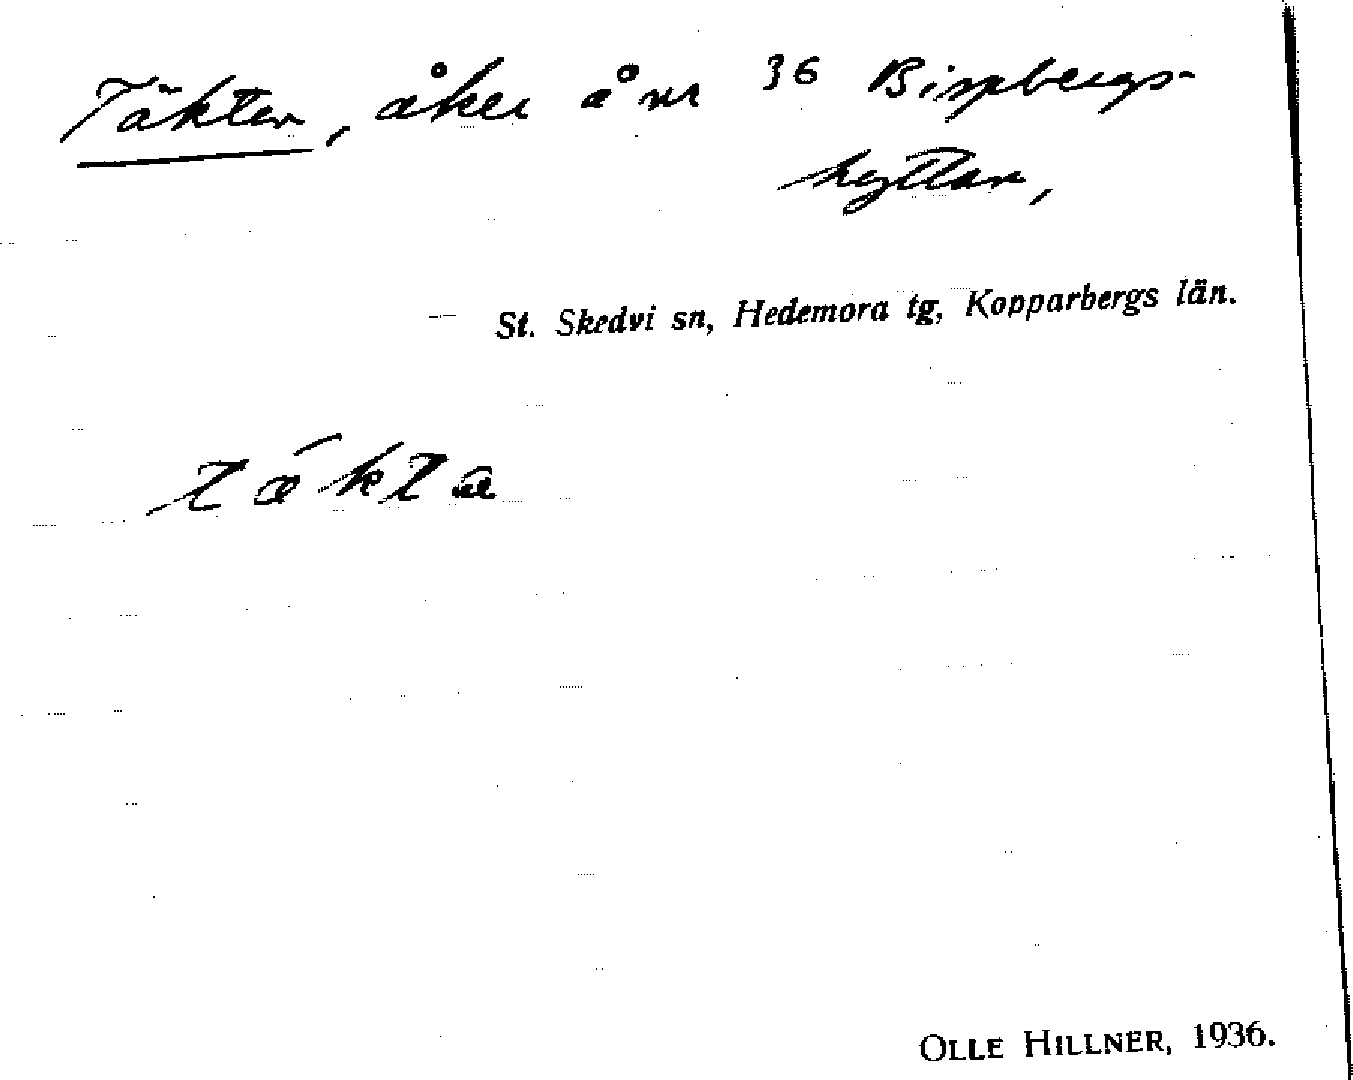 Täkten, åker å nr 36 Bispbergs-
hyttan,
St. Skedvi sn, Hedemora tg, Kopparbergs län.
tǽkta
OLLE HILLNER, 1936.